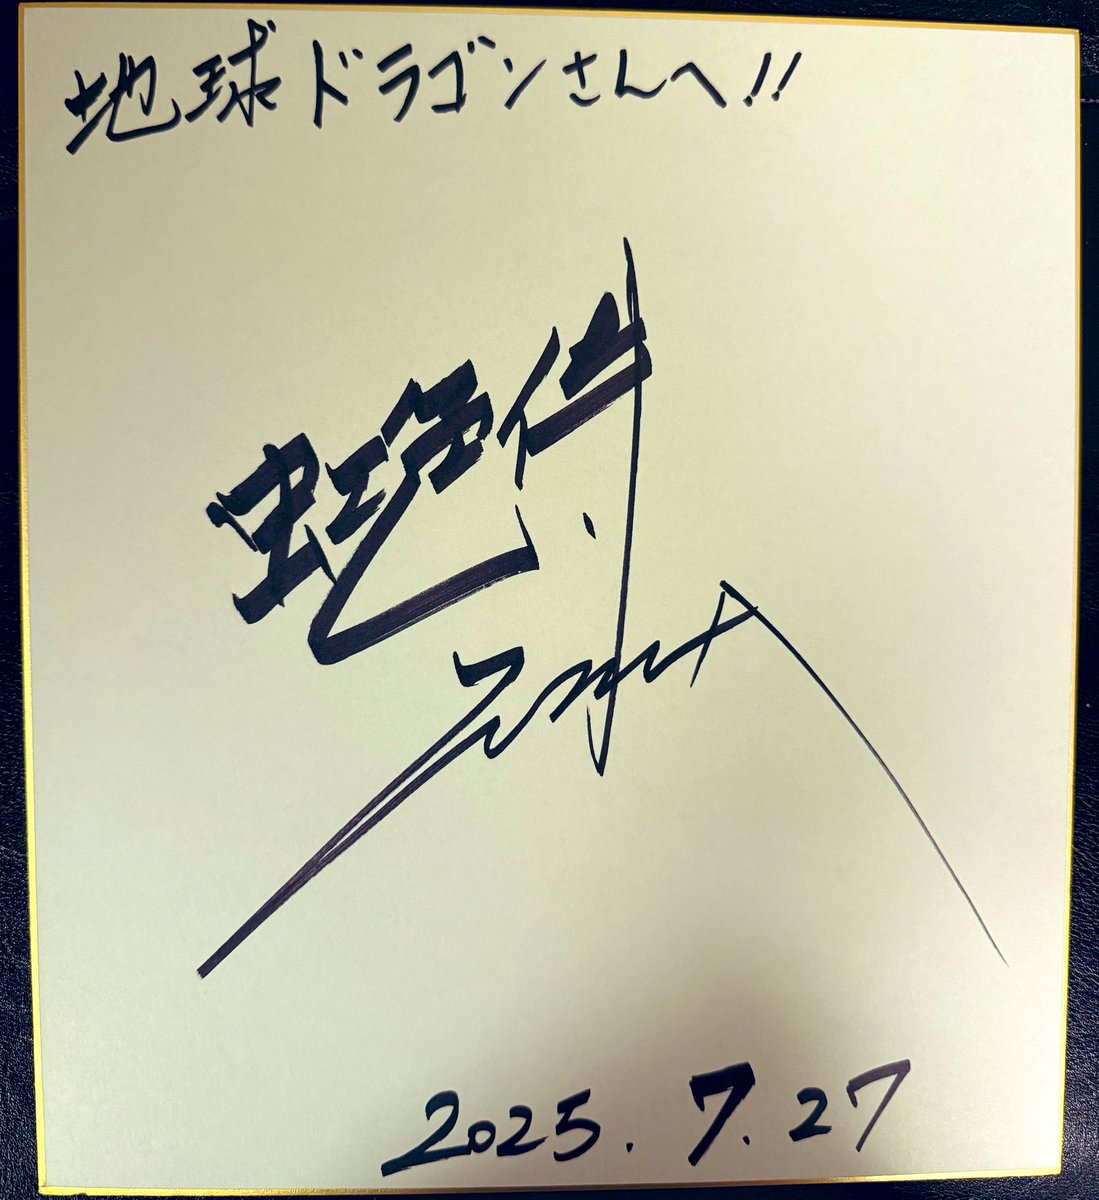 地球ドラゴンさんへ!!
虹色侍
2025.7.27